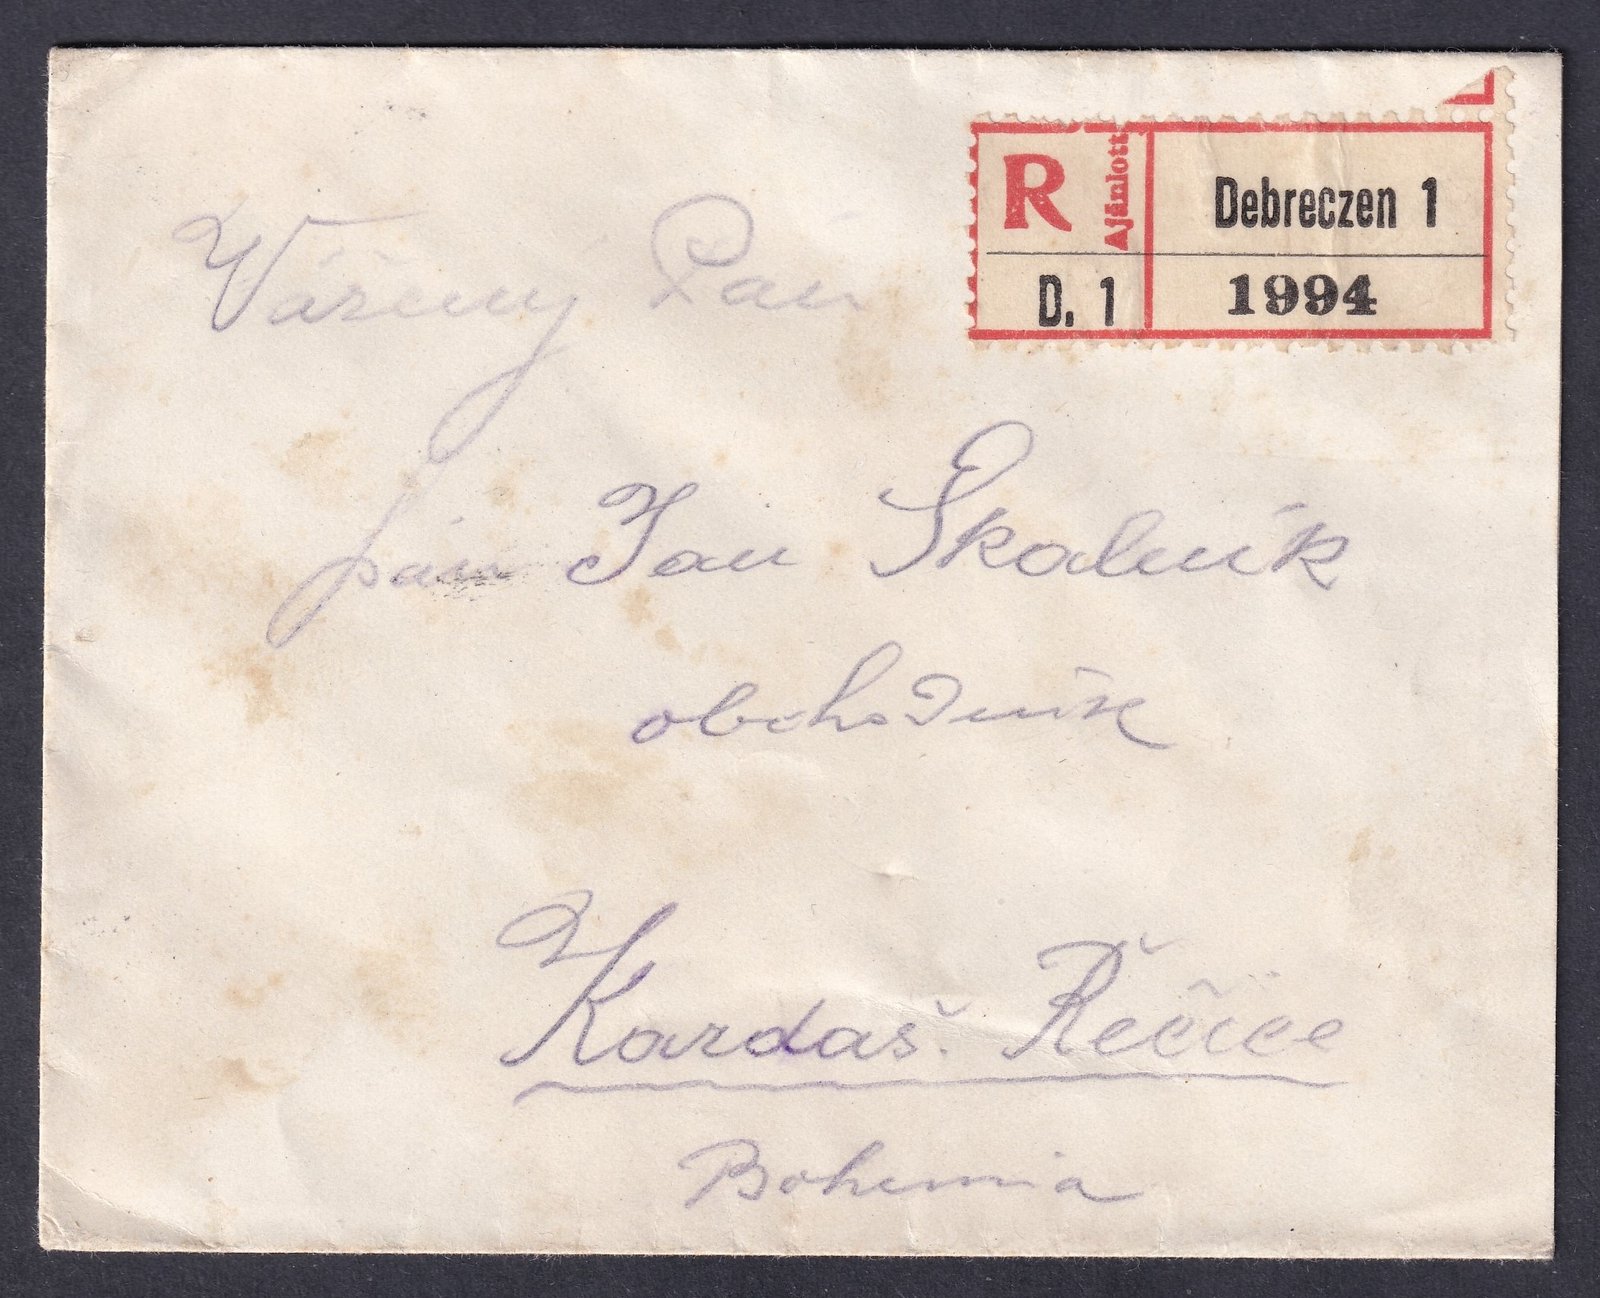 R Ajánlott Debreczen 1
D. 1 1994
Vážený Pán
pán Jan Skalník
obchodník
Kardaš. Řečice
Bohemia